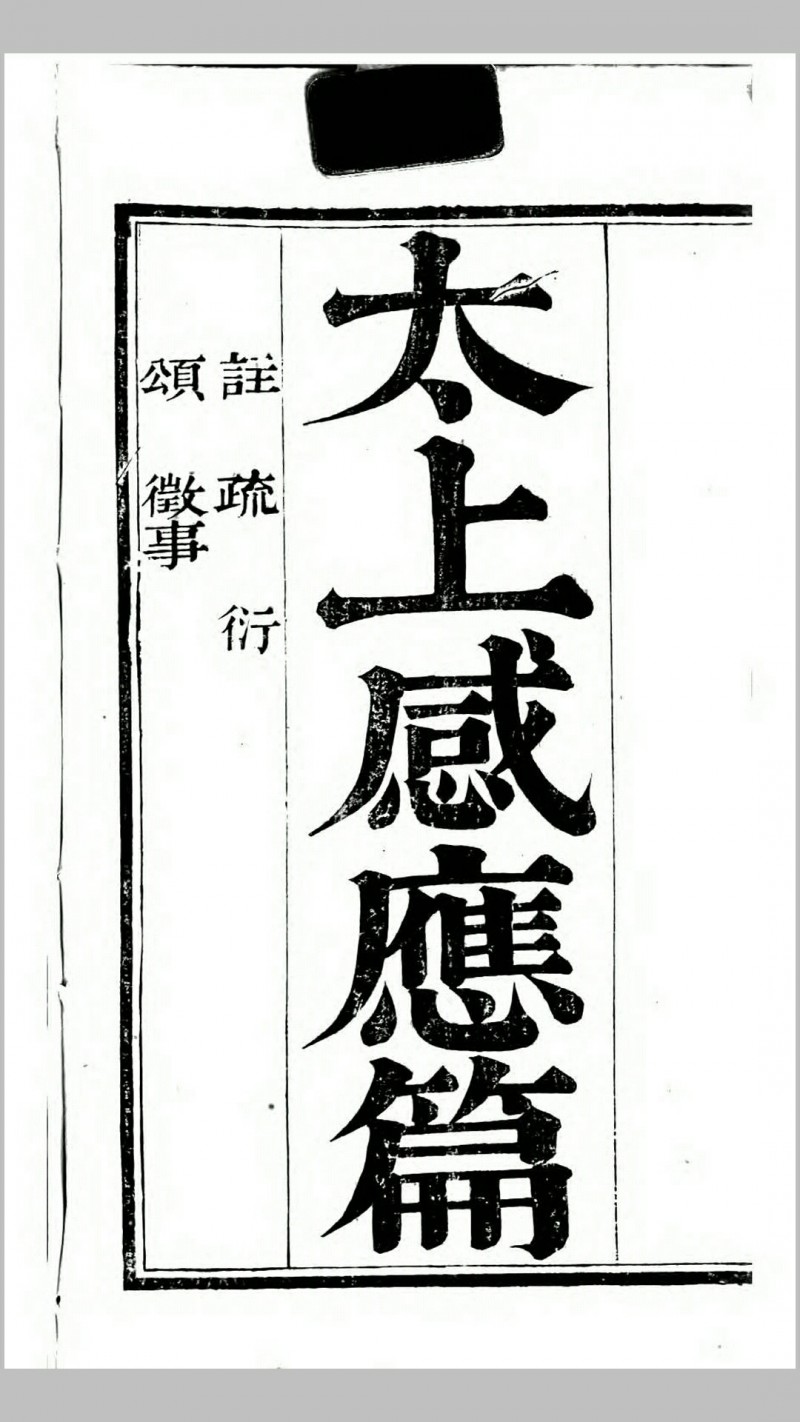 太上感應篇
註 疏 衍
頌 徵事